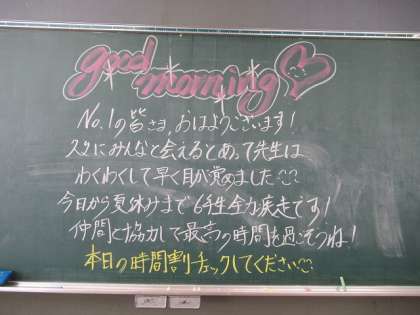 good
morning
No.1の皆さま、おはようございます!
久々にみんなと会えるとあって先生は
わくわくして早く目が覚めました
今日から夏休みまで6年生全力疾走です!
仲間と協力して最高の時間を過ごそうね!
本日の時間割チェックしてください